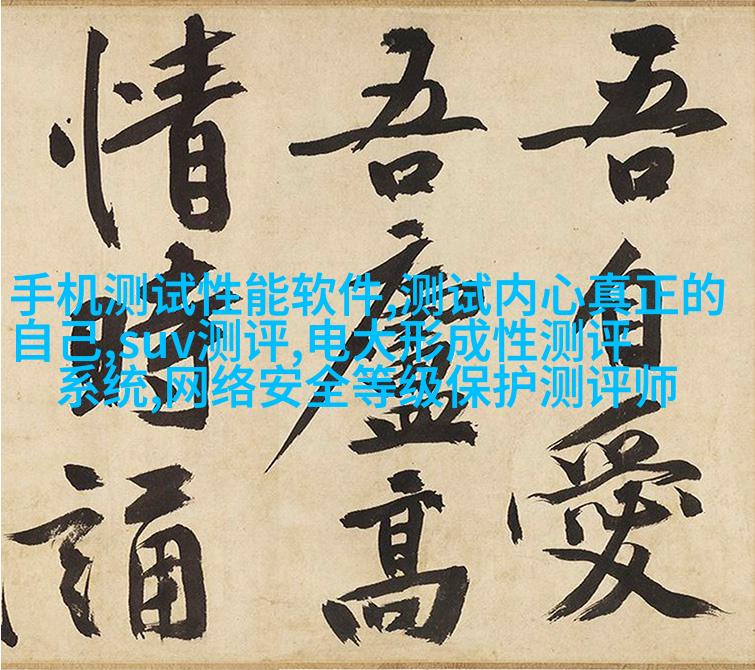 吾自愛
吾廬高
情時誦
手机测试性能软件,测试内心真正的
自己,suv测评,电大形成性测评
系统,网络安全等级保护测评师